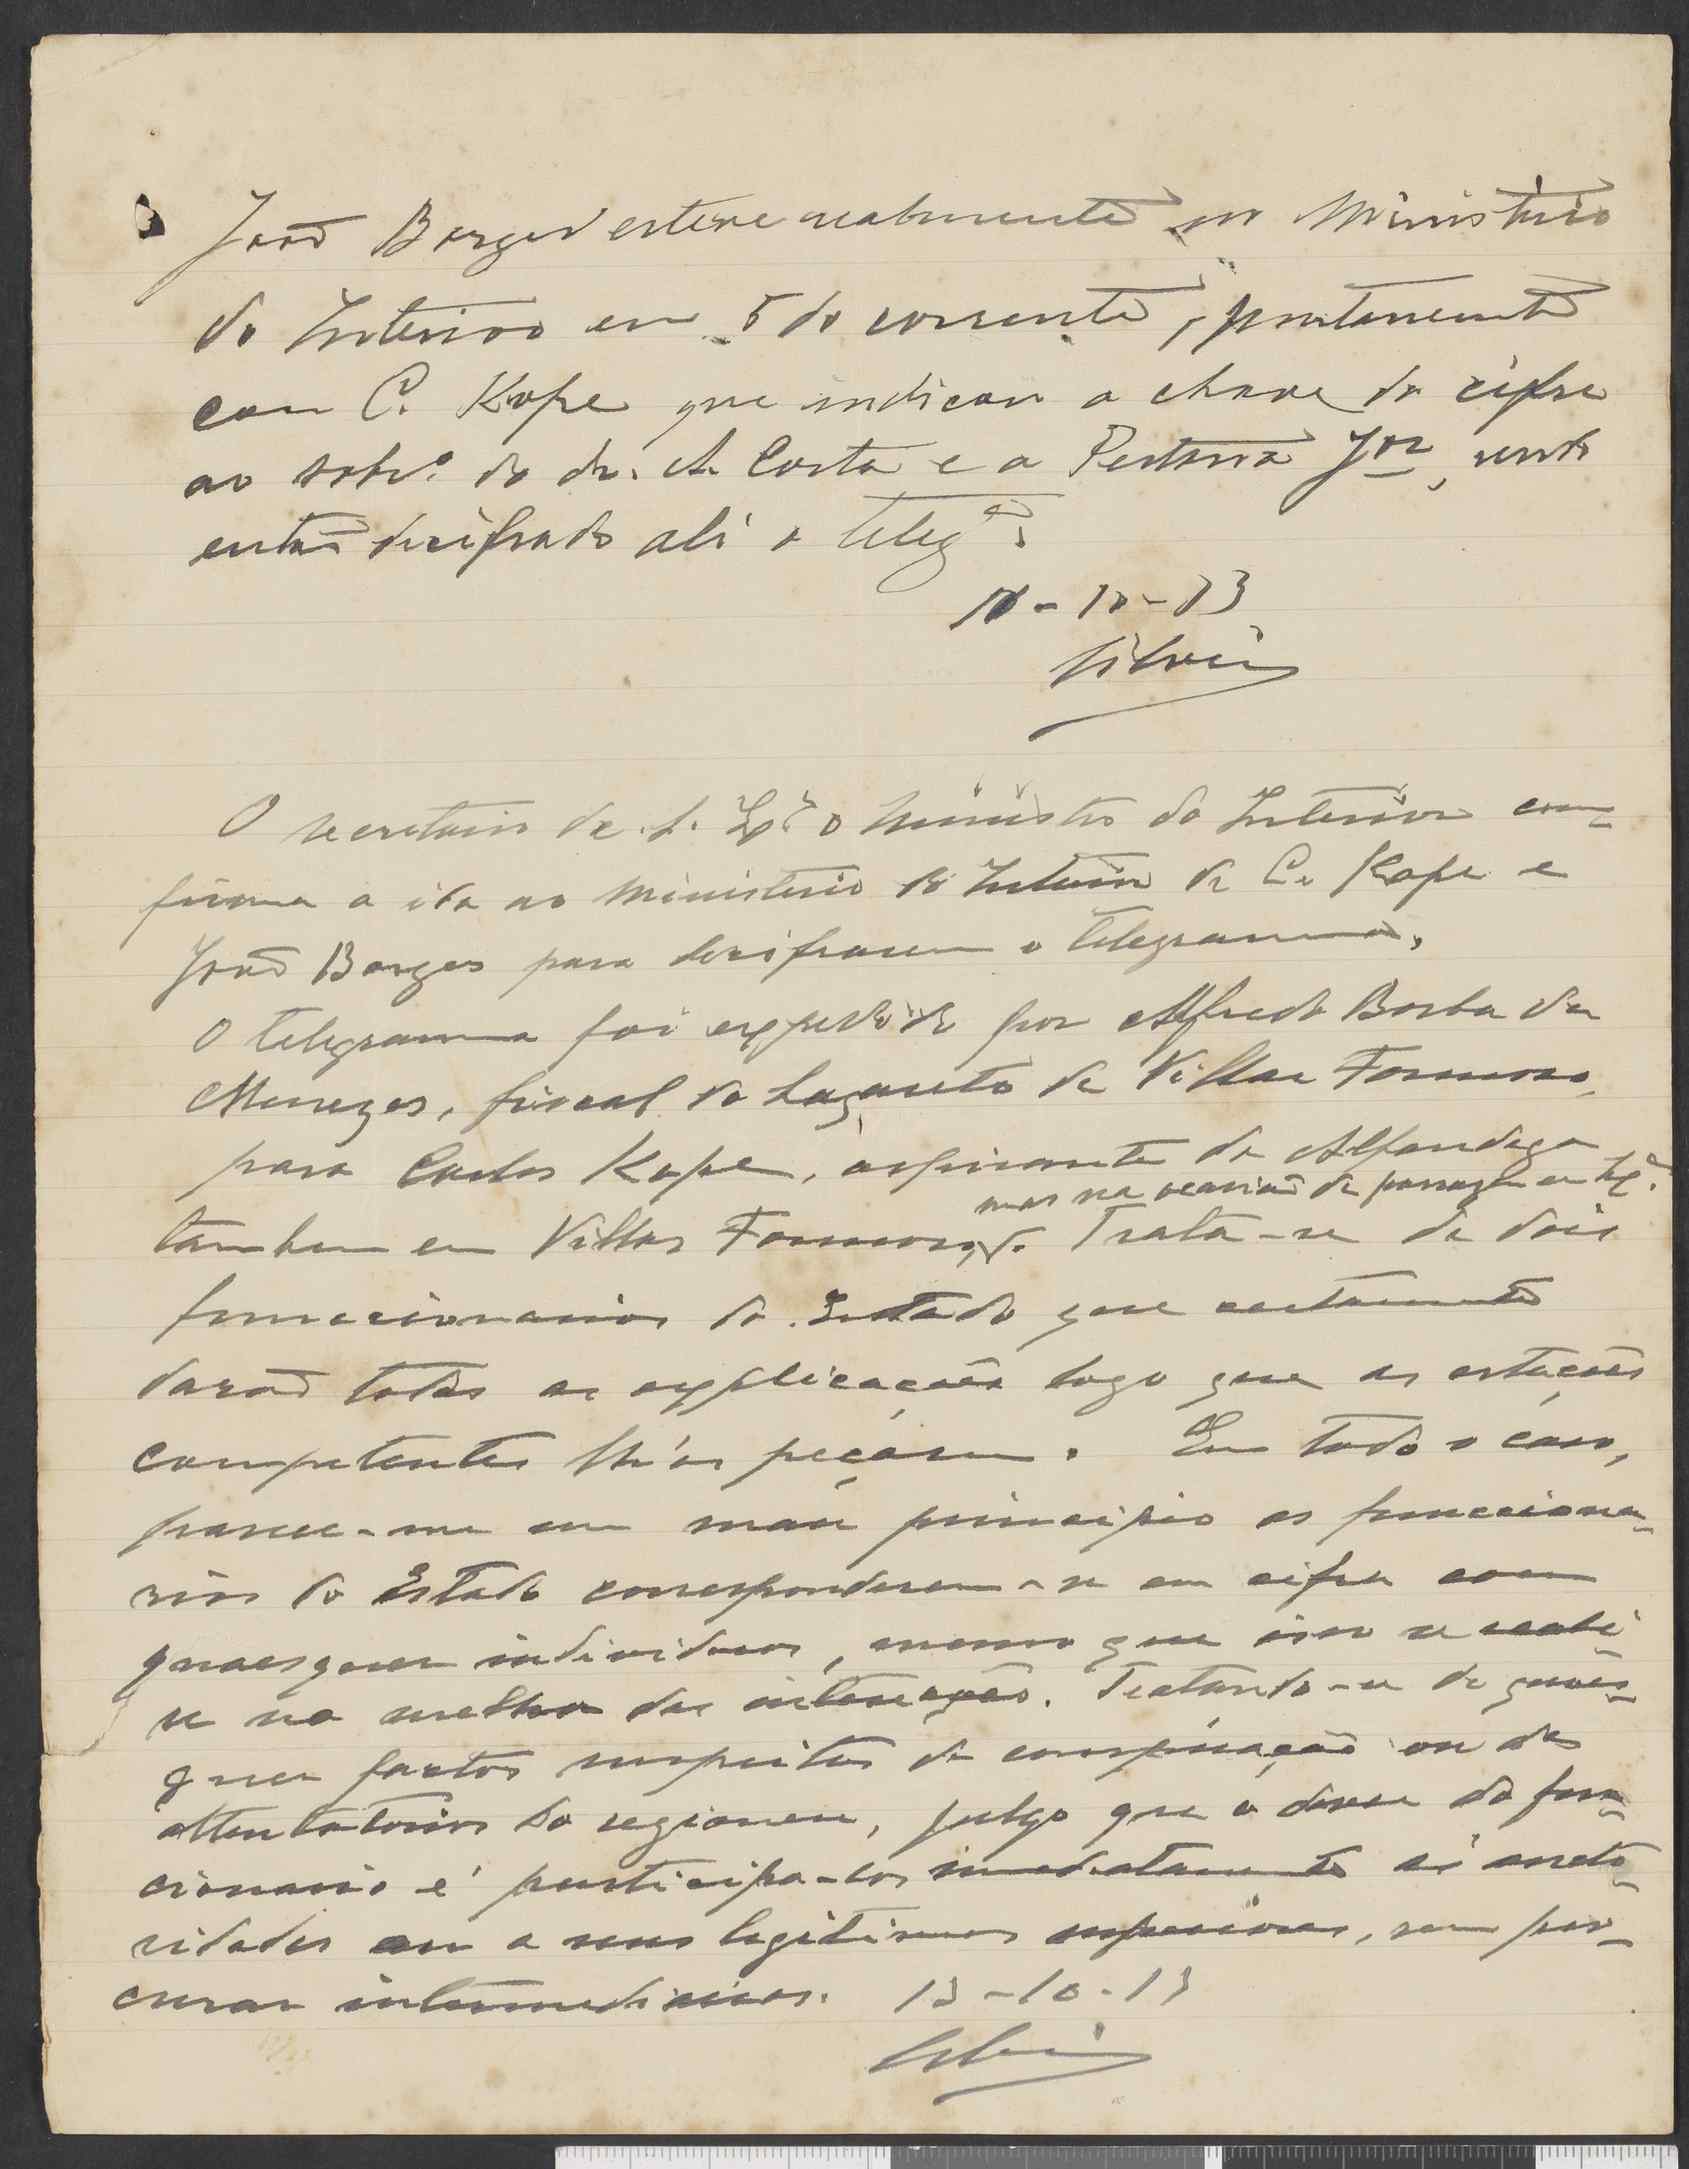 João Borges esteve realmente no Ministerio
do Interior em 5 do corrente, juntamente
com C. Kope que indicou a chave da cifra
ao sobr.º do dr. A. Costa e a Pestana Jor, sendo
então decifrado ali o teleg.ª
10-10-13
Silvio
O secretario de S. Ex.ª o Ministro do Interior con-
firma a ida ao Ministerio do Interior de C. Kope e
João Borges para decifrarem o telegramma.
O telegramma foi expedido por Alfredo Borba de
Menezes, fiscal do Lazareto de Villar Formoso,
para Carlos Kope, aspirante da Alfandega
tambem em Villar Formoso, mas na occasião de passagem em Lx.ª. Trata-se de dois
funccionarios do Estado que certamente
darão todas as explicações logo que as estações
competentes lh'as peçam. Em todo o caso,
parece-me um mau principio os funcciona-
rios do Estado corresponderem-se em cifra com
quaesquer individuos, mesmo que isso se reali-
se na melhor das intenções. Tratando-se de quaes-
quer factos suspeitos de conspiração ou de
attentatorios do regimen, julgo que o dever do func-
cionario é participa-los immediatamente ás aucto-
ridades ou a seus legitimos superiores, sem pro-
curar intermediarios. 13-10-13
Silvio